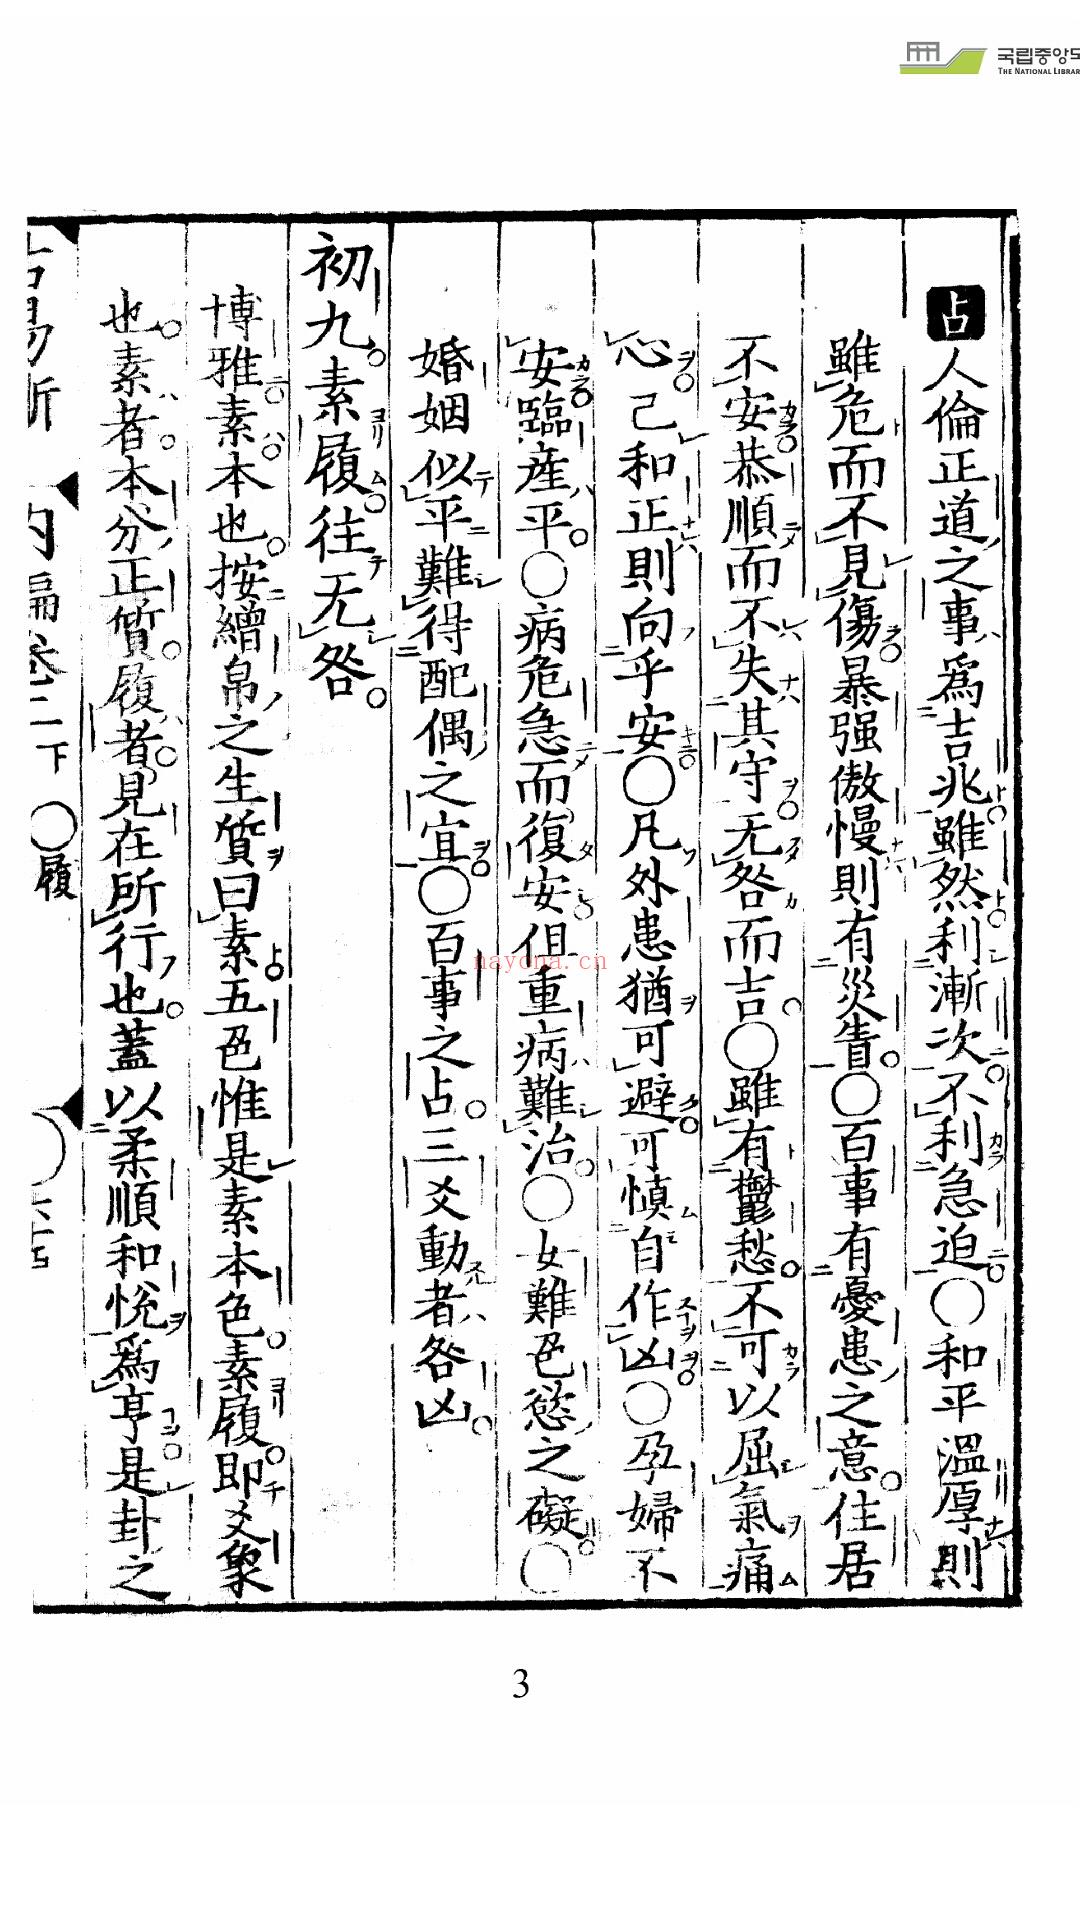 국립중앙도
THE NATIONAL LIBRAR
占人倫正道之事爲吉兆雖然利漸次不利急迫○和平溫厚則
雖危而不見傷暴强傲慢則有災眚○百事有憂患之意住居
不安恭順而不失其守无咎而吉○雖有鬱愁不可以屈氣痛
心己和正則向乎安○凡外患猶可避可愼自作凶○孕婦不
安臨産平○病危急而復安但重病難治○女難色慾之礙○
婚姻似平難得配偶之宜○百事之占三爻動者咎凶
初九素履往无咎
博雅素本也按繒帛之生質曰素五色惟是素本色素履卽爻象
也素者本分正質履者見在所行也蓋以柔順和悅爲亨是卦之
古易斷 內編卷二下 ○履
nayona.cn
3